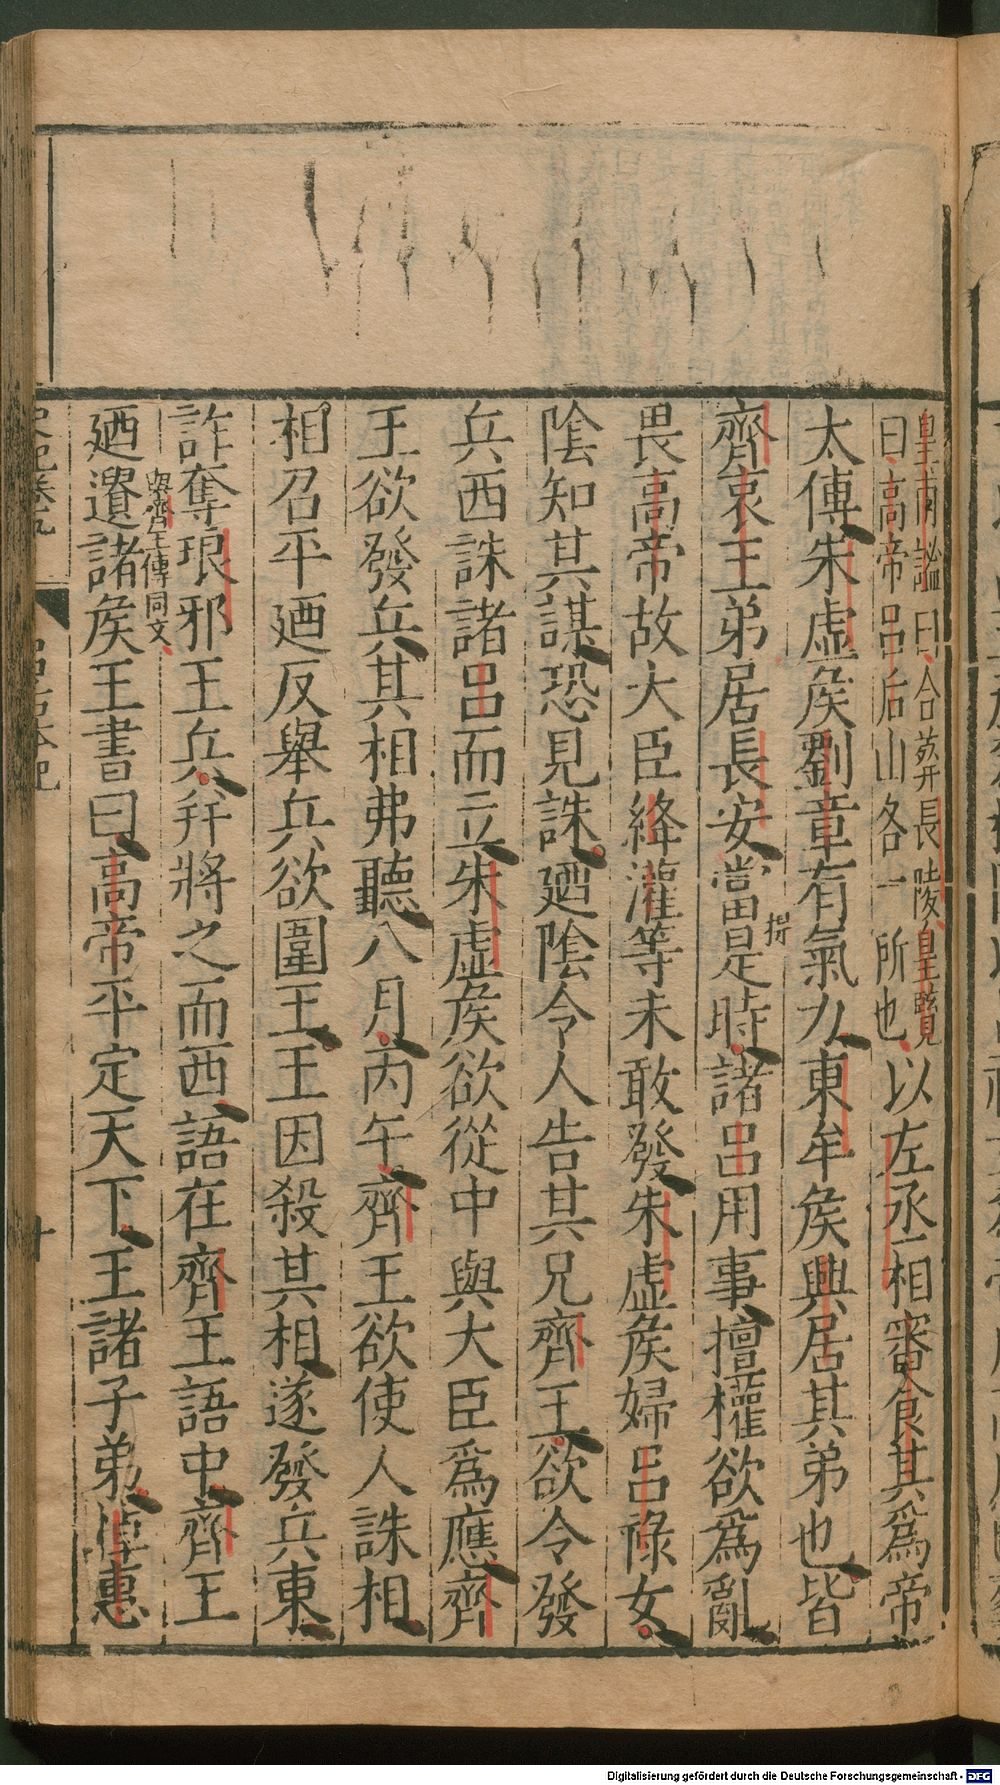 皇甫謐曰合葬長陵皇覽
曰高帝呂后山各一所也
以左丞相審食其爲帝
太傅朱虛矦劉章有氣力東牟矦興居其弟也皆
齊哀王弟居長安當是時諸呂用事擅權欲爲亂
畏高帝故大臣絳灌等未敢發朱虛矦婦呂祿女
陰知其謀恐見誅廼陰令人告其兄齊王欲令發
兵西誅諸呂而立朱虛矦欲從中與大臣爲應齊
王欲發兵其相弗聽八月丙午齊王欲使人誅相
相召平廼反舉兵欲圍王王因殺其相遂發兵東
詐奪琅邪王兵幷將之而西語在齊王語中齊王
與齊王傳同文
廼遺諸矦王書曰高帝平定天下王諸子弟悼惠
史記卷九
呂后本紀
十
Digitalisierung gefördert durch die Deutsche Forschungsgemeinschaft - DFG